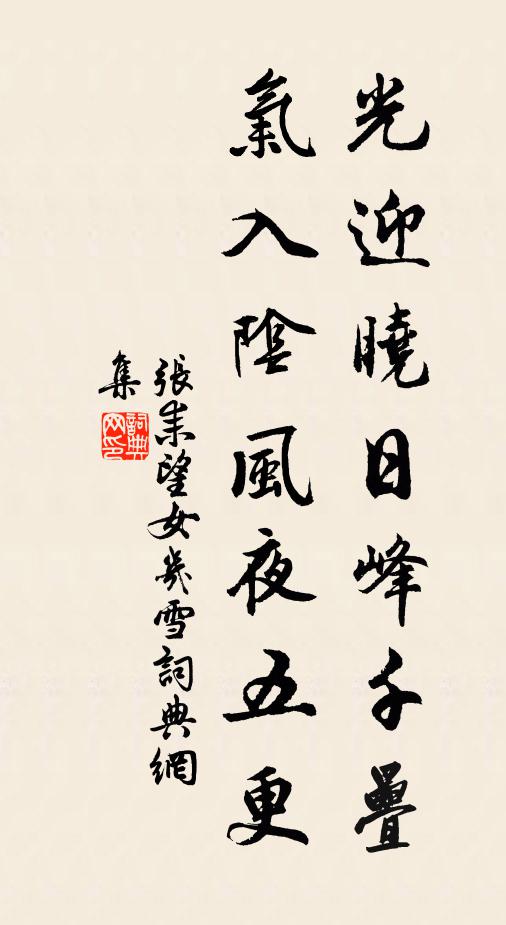 光迎曉日峰千疊
氣入陰風夜五更
張耒望女几雪詞典網
集
詞典
网印